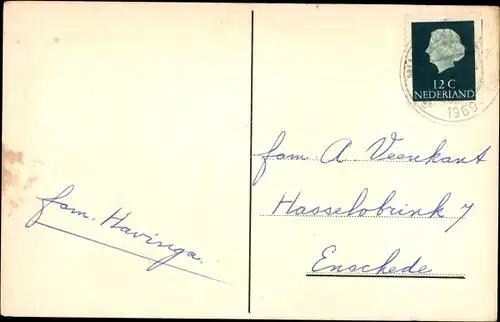 fam. Havinga.
12 C
NEDERLAND
1969
fam. A Veenkant
Hasselobrink 7
Enschede